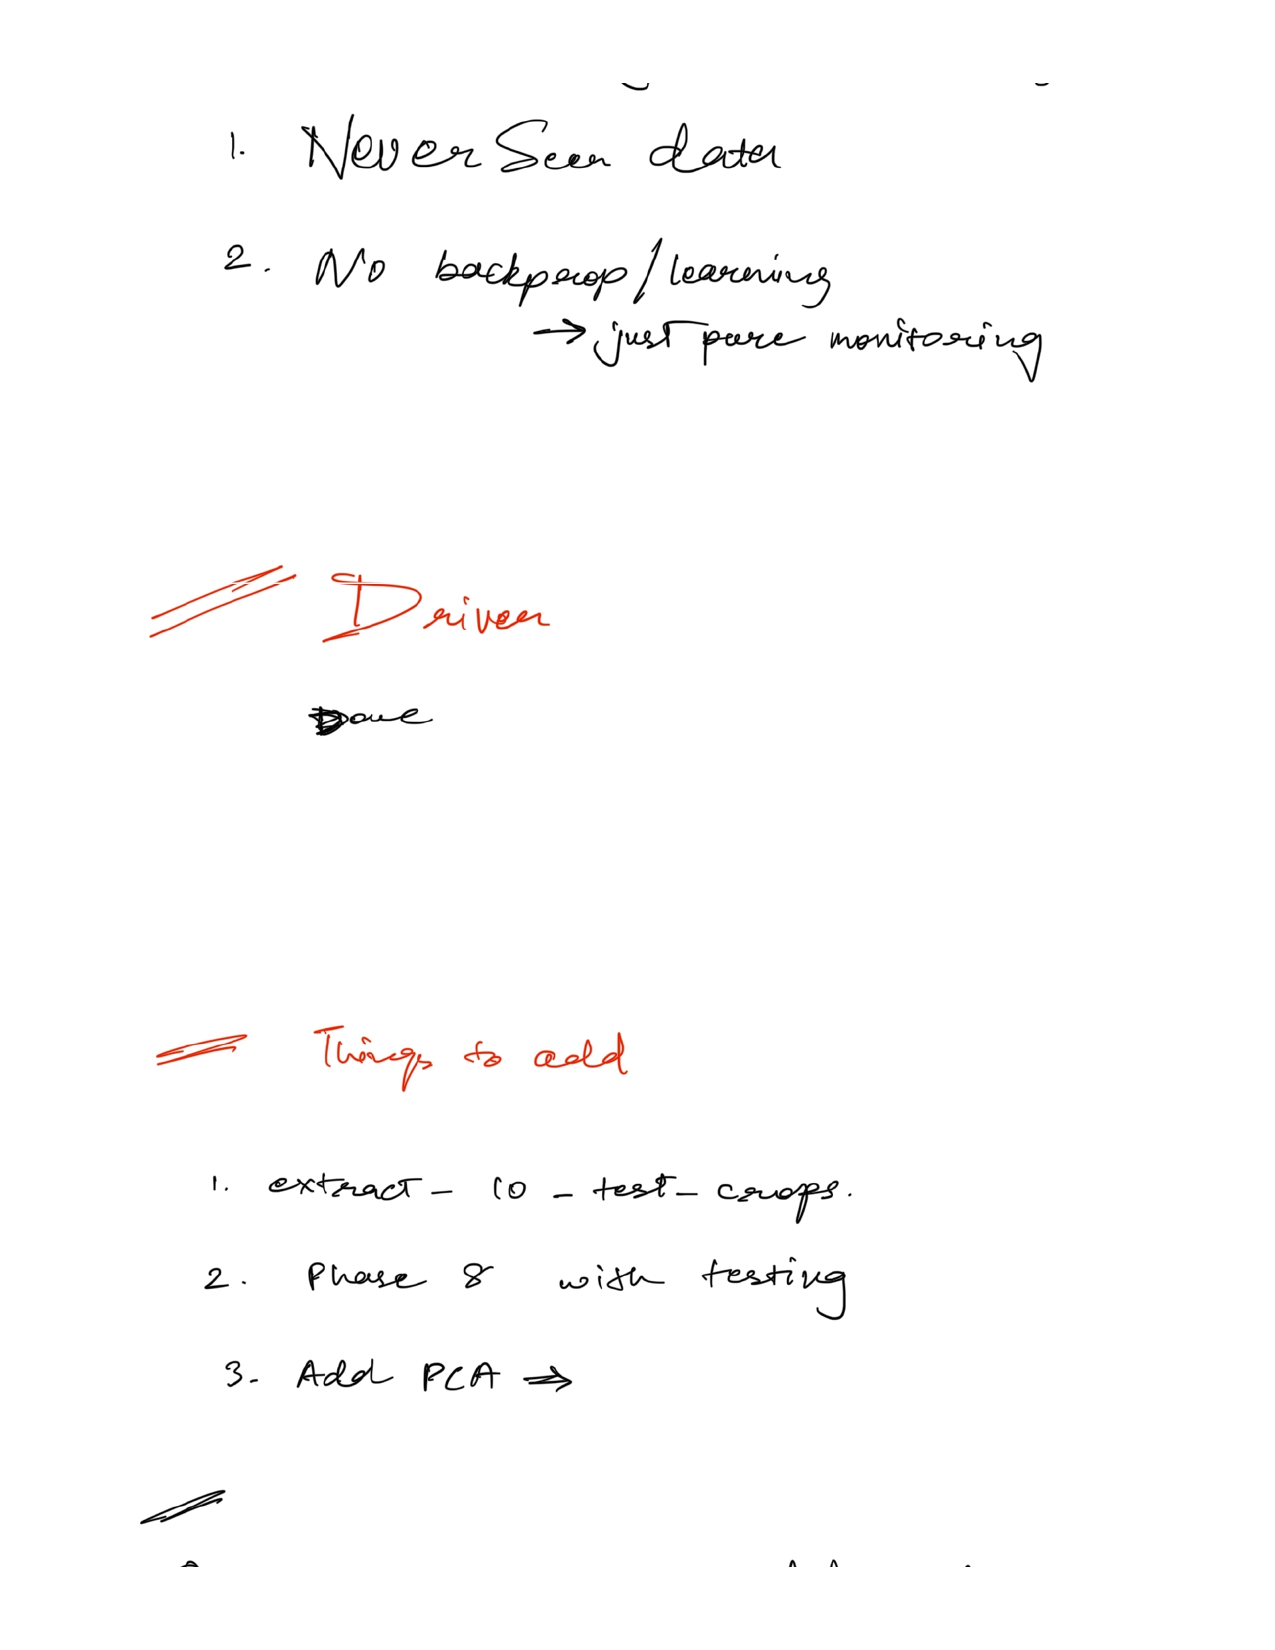 1. Never Seen data
2. No backprop/learning
→ just pure monitoring
Driver
Done
Things to add
1. extract - 10 - test - crops.
2. Phase 8 with testing
3. Add PCA →